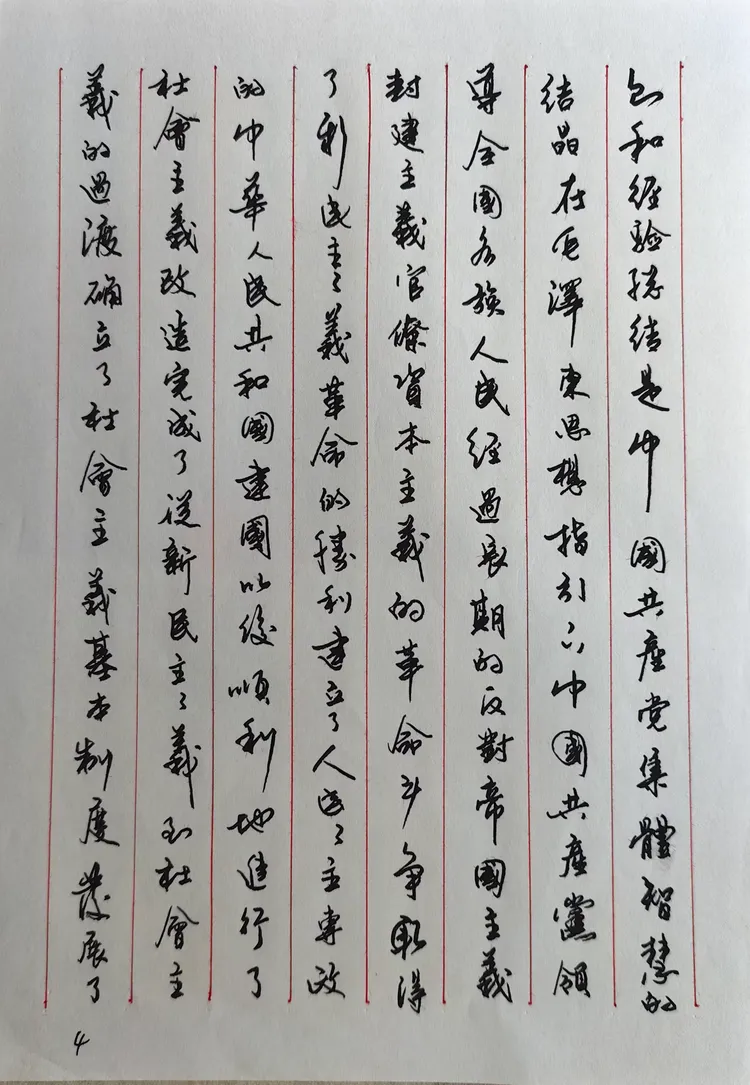 则和經驗總結是中國共產党集體智慧的
結晶在毛澤東思想指引下中國共產黨領
導全國各族人民經過長期的反對帝國主義
封建主義官僚資本主義的革命斗争取得
了新民主〻義革命的勝利建立了人民〻主專政
的中華人民共和國建國以後順利地進行了
社會主義改造完成了從新民主〻義到社會主
義的過渡确立了社會主義基本制度發展了
4